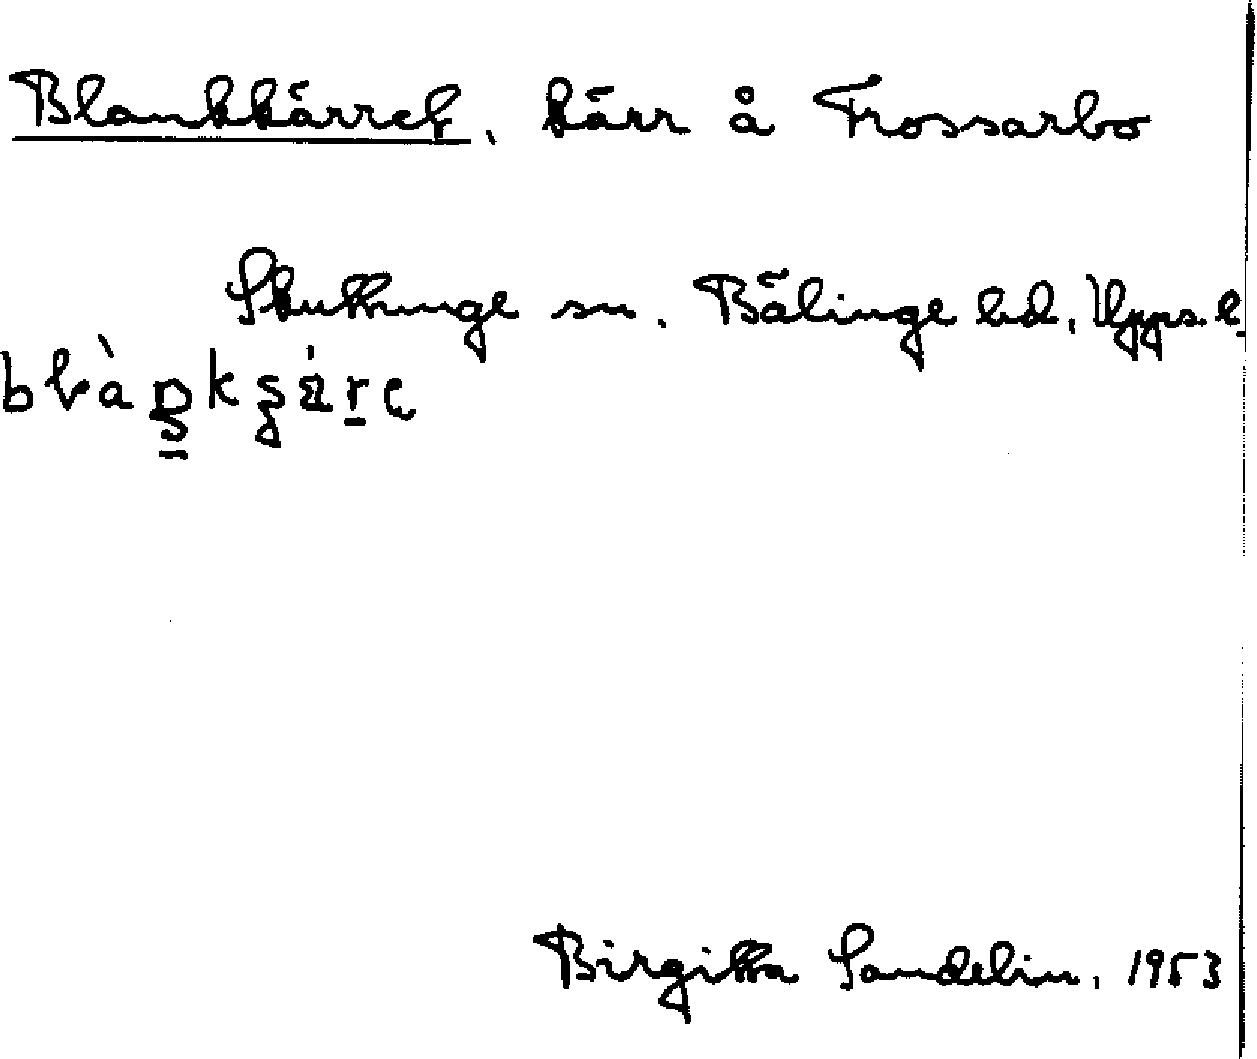 Blankkärret, kärr å Trossarbo
Skuttunge sn. Bälinge hd, Upps. l.
Birgitta Sandelin, 1953